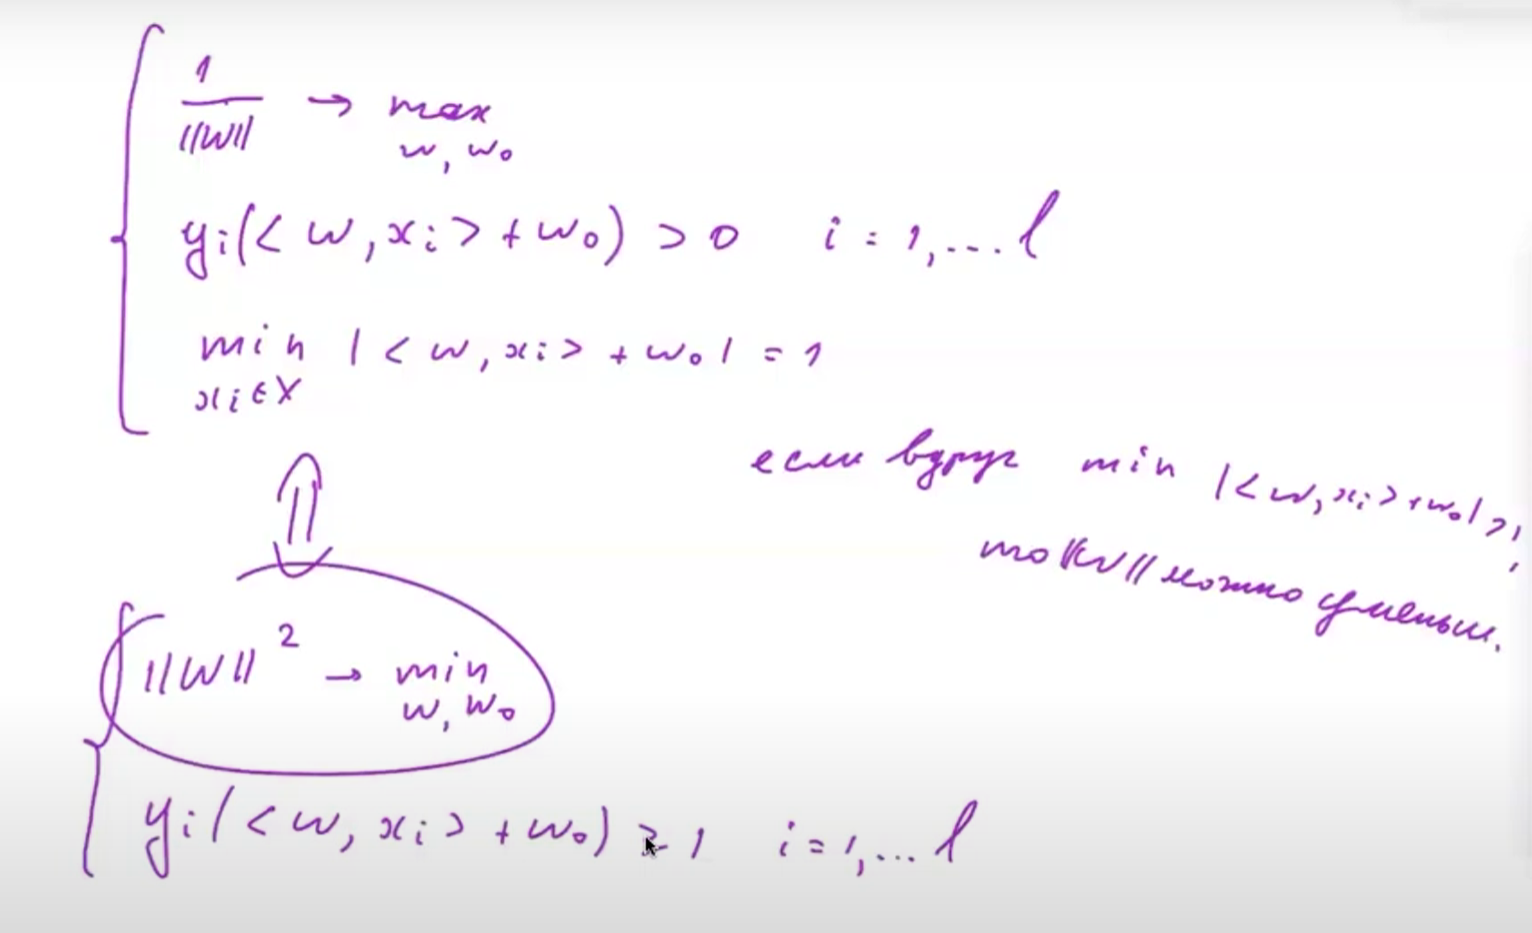 1/||w|| → max
w, w₀
yᵢ(<w, xᵢ> + w₀) > 0 i = 1, ... l
min |<w, xᵢ> + w₀| = 1
xᵢ ∈ X
если вдруг min |<w, xᵢ> + w₀| > 1,
то ||w|| можно уменьш.
||w||² → min
w, w₀
yᵢ(<w, xᵢ> + w₀) ≥ 1 i = 1, ... l